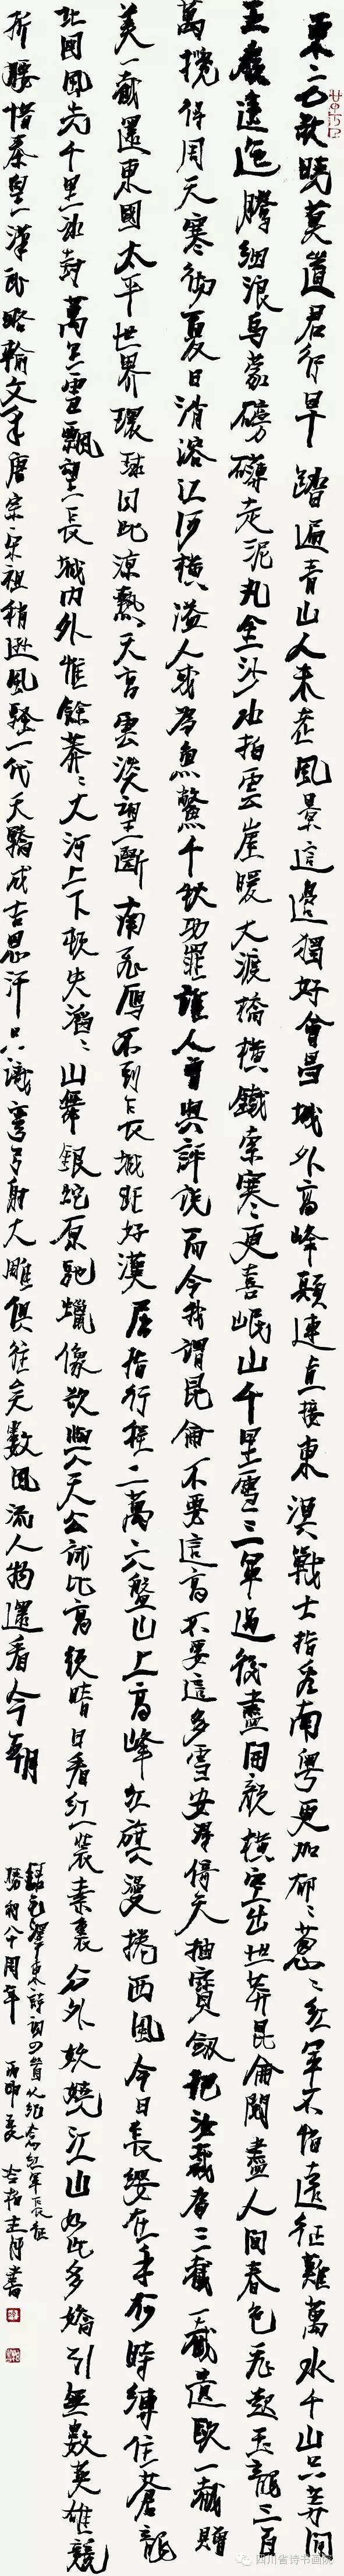 東方欲曉莫道君行早踏遍青山人未老風景這邊獨好會昌城外高峰顛連直接東溟戰士指看南粵更加郁〻蔥〻紅軍不怕遠征難萬水千山只等閒
五嶺逶迤騰細浪烏蒙磅礴走泥丸金沙水拍雲崖暖大渡橋橫鐵索寒更喜岷山千里雪三軍過後盡開顏橫空出世莽昆侖閱盡人間春色飛起玉龍三百
萬攪得周天寒徹夏日消溶江河橫溢人或為魚鱉千秋功罪誰人曾與評說而今我謂昆侖不要這高不要這多雪安得倚天抽寶劍把汝裁為三截一截遺歐一截贈
美一截還東國太平世界環球同此涼熱天高雲淡望斷南飛雁不到長城非好漢屈指行程二萬六盤山上高峰紅旗漫捲西風今日長纓在手何時縛住蒼龍
北國風光千里冰封萬里雪飄望長城內外惟餘莽〻大河上下頓失滔〻山舞銀蛇原馳蠟像欲與天公試比高須晴日看紅裝素裹分外妖嬈江山如此多嬌引無數英雄競
折腰惜秦皇漢武略輸文采唐宗宋祖稍遜風騷一代天驕成吉思汗只識彎弓射大雕俱往矣數風流人物還看今朝
錄毛澤東詩詞四首以紀念紅軍長征
勝利八十周年 丙申夏 書
四川省诗书画院